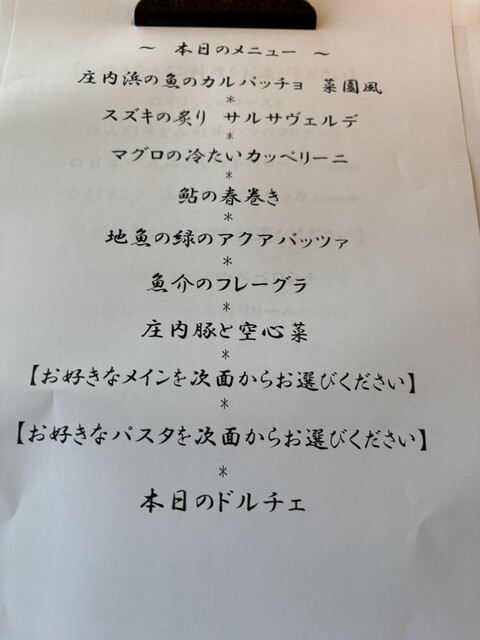 ～ 本日のメニュー ～
庄内浜の魚のカルパッチョ 菜園風
*
スズキの炙り サルサヴェルデ
*
マグロの冷たいカッペリーニ
*
鮎の春巻き
*
地魚の緑のアクアパッツァ
*
魚介のフレーグラ
*
庄内豚と空心菜
*
【お好きなメインを次面からお選びください】
*
【お好きなパスタを次面からお選びください】
*
本日のドルチェ